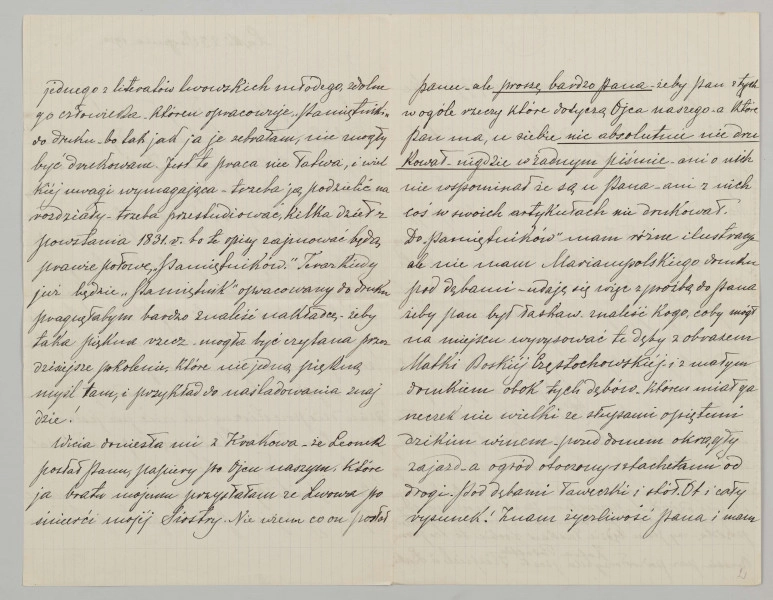 jednego z literatów lwowskich młodego, zdolne
go człowieka - któren opracowuje „Pamiętnik"
do druku - bo tak jak ja je zebrałam, nie mogły
być drukowane. Jest to praca nie łatwa, i wiel
kiéj uwagi wymagająca - trzeba ją podzielić na
rozdziały - trzeba przestudiować, kilka dzieł z
powstania 1831. r. bo te opisy zajmować będą
prawie połowę „Pamiętników." Teraz kiedy
już będzie „Pamiętnik" opracowany do druku
pragnęłabym bardzo znaleść nakładcę - żeby
taka piękna rzecz - mogła być czytana przez
dzisiejsze pokolenie, które nie jedną piękną
myśl tam, i przykład do naśladowania znaj
dzie!
Wicia doniosła mi z Krakowa - że Leonek
posłał Panu, papiery po Ojcu naszym, które
ja bratu mojemu przysłałam ze Lwowa po
śmierci mojéj Siostry. Nie wiem co on posłał
panu - ale proszę bardzo Pana - żeby pan z tych
w ogóle rzeczy które dotyczą Ojca naszego - a które
pan ma, u siebie nic absolutnie nie dru
kował - nigdzie w żadnym piśmie - ani o nich
nie wspominał że są u Pana - ani z nich
coś w swoich artykułach nie drukował.
Do „Pamiętników" mam różne ilustracye
ale nie mam Mariampolskiego domku
pod dębami - udaję się więc z prośbą do Pana
żeby pan był łaskaw. znaleść kogo, coby mógł
na miejscu wyrysować te dęby z obrazem
Matki Boskiéj Częstochowskiéj, i z małym
domkiem obok tych dębów - któren miał ga
neczek nie wielki ze słupami opiętemi
dzikim winem - przed domem okrągły
zajazd - a ogród otoczony sztachetami od
drogi. Pod dębami ławeczki i stół. Ot i cały
rysunek! Znam życzliwość Pana i mam